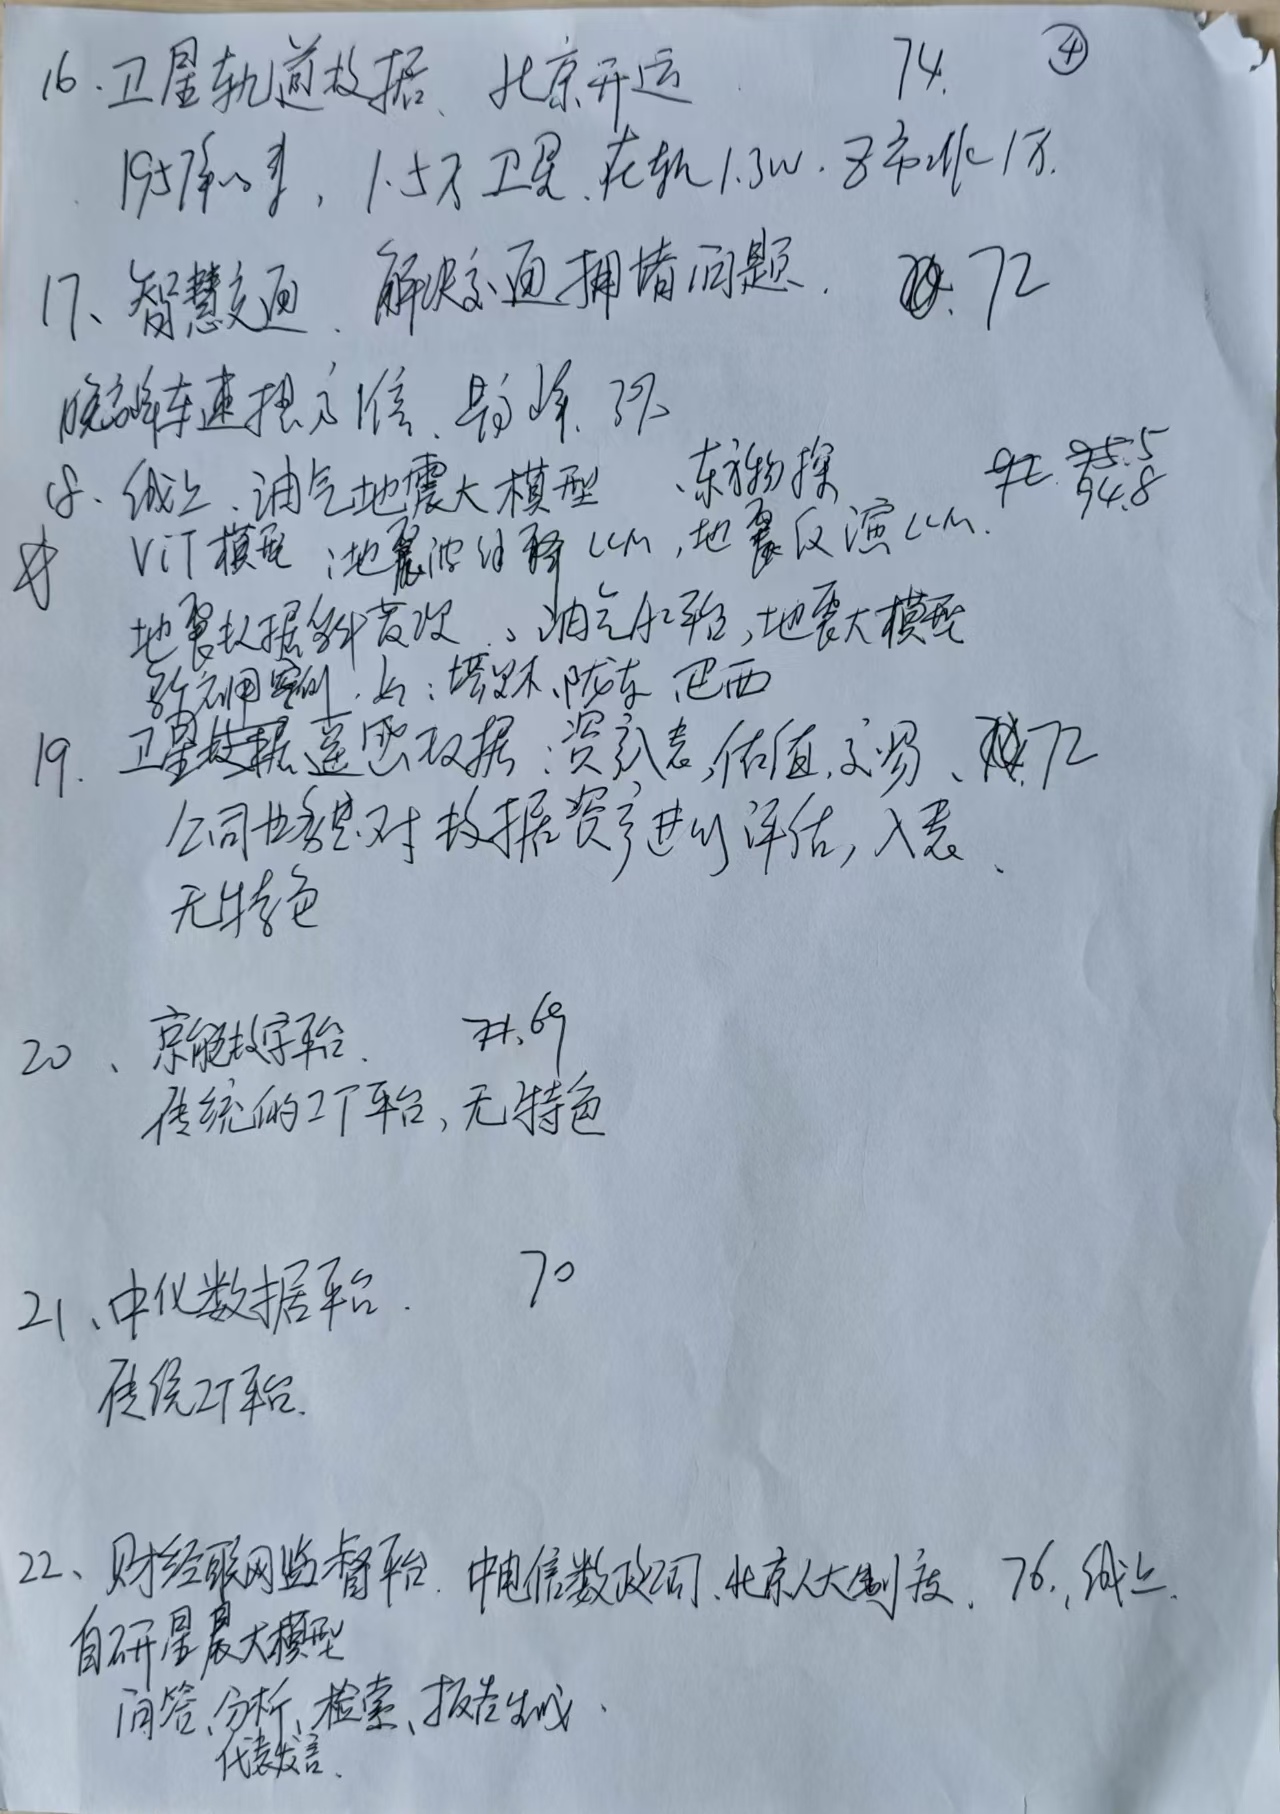 16. 卫星轨道数据、北京开运 74. ④
1957年以来, 1.5万卫星, 在轨1.3w. 1万.
17、智慧交通、解决交通拥堵问题. 72
晚高峰车速提 倍、 降 3%
18. 线上、油气地震大模型 、东方物探 92 95.5
94.8
ViT模型;地震波 LLM,地震反演LLM.
地震数据 首次、油气 平台,地震大模型
应用案例.如:塔里木、陇东 巴西
19. 卫星数据遥感数据:资产入表,估值,交易、72
公司业务是对数据资产进行评估,入表、
无特色
20、京能数字平台. 71. 69
传统的IT平台,无特色
21、中化数据平台. 70
传统IT平台.
22、财经联网监督平台. 中电信数政公司、北京人大制度. 76., 线上.
自研星辰大模型
问答、分析、检索、报告生成.
代表发言.